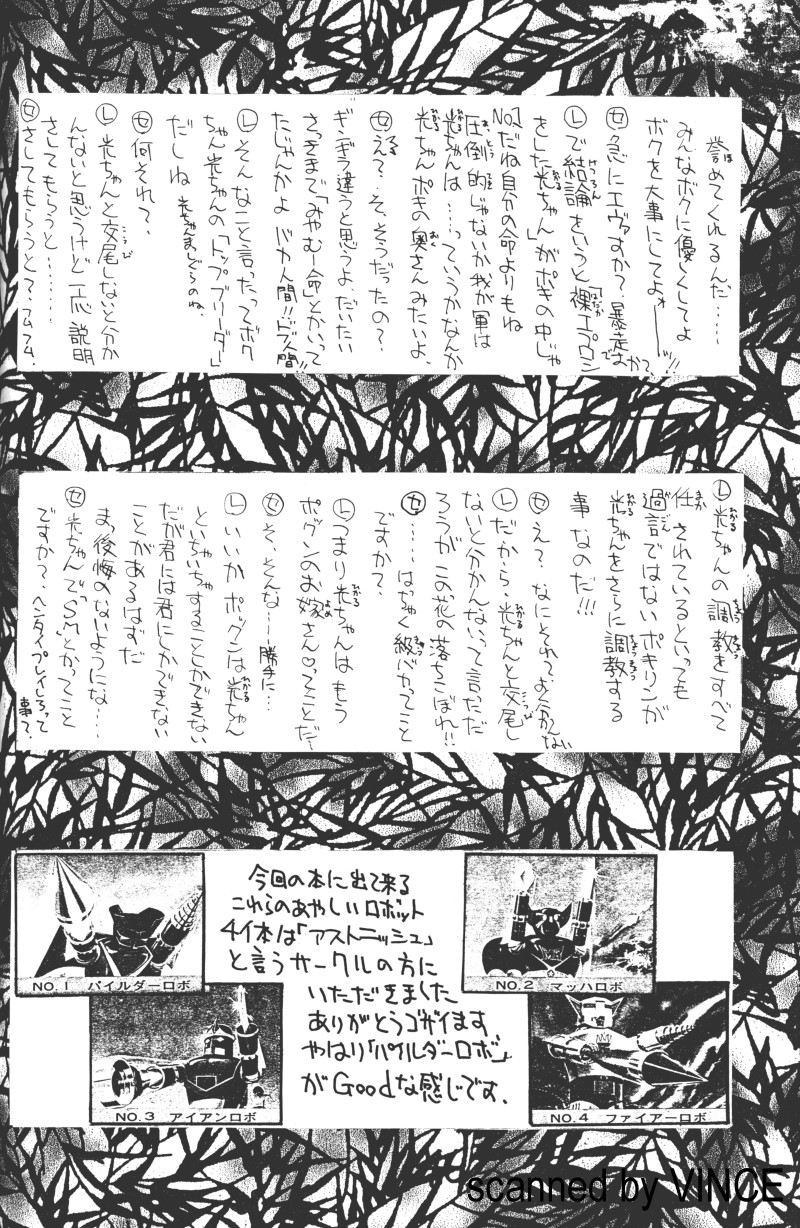 誉めてくれるんだ‥‥
みんなボクに優しくしてよ
ボクを大事にしてよォーーッ!!
㋝急にエヴァですか?暴走はか?
Ⓛで結論をいうと「裸エプロン
をした光ちゃん」がポキの中じゃ
No.1だね自分の命よりもね
圧倒的じゃないか我が軍は
光ちゃんは‥‥っていうかなんか
光ちゃんポキの奥さんみたいよ。
㋝え?そ、そうだったの?
ギンギラ違うと思うよ、だいたい
さっきまで「みやむー命」とかいって
たじゃんかよ バカ人間!!ドブ人間!!
Ⓛそんなこと言ったってボク
ちゃん光ちゃんの「トップブリーダー」
だしね 光ちゃまっしぐらのね。
㋝何それ?
Ⓛ光ちゃんと交尾しないと分か
んないと思うけど一応説明
さしてもらうと‥‥‥
㋝さしてもらうと?フムフム。
Ⓛ光ちゃんの調教をすべて
任されているといっても
過言ではないポキリンが
光ちゃんをさらに調教する
事なのだ!!!
㋝え?なにそれ?よく分かんない
Ⓛだから、光ちゃんと交尾し
ないと分かんないって言っただ
ろうがこの花の落ちこぼれ!!
㋝‥‥はちゃく級バカってこと
ですか?
Ⓛつまり光ちゃんはもう
ボグンのお嫁さん♡ってことだ‥
㋝そ、そんな‥‥勝手に‥
Ⓛいいかボックンは光ちゃん
といちゃいちゃすることしかできない
だが君には君にしかできない
ことがあるはずだ
まっ後悔のないようにな‥
㋝光ちゃんで"SM"とかってこと
ですか?ヘンタイプレイしろって
事?。
今回の本に出て来る
これらのあやしいロボット
4体は「アストニッシュ」
と言うサークルの方に
いただきました
ありがとうゴザイます
やはり「パイルダーロボ」
がGoodな感じです.
NO.1 パイルダーロボ
NO.2 マッハロボ
NO.3 アイアンロボ
NO.4 ファイアーロボ
scanned by VINCE